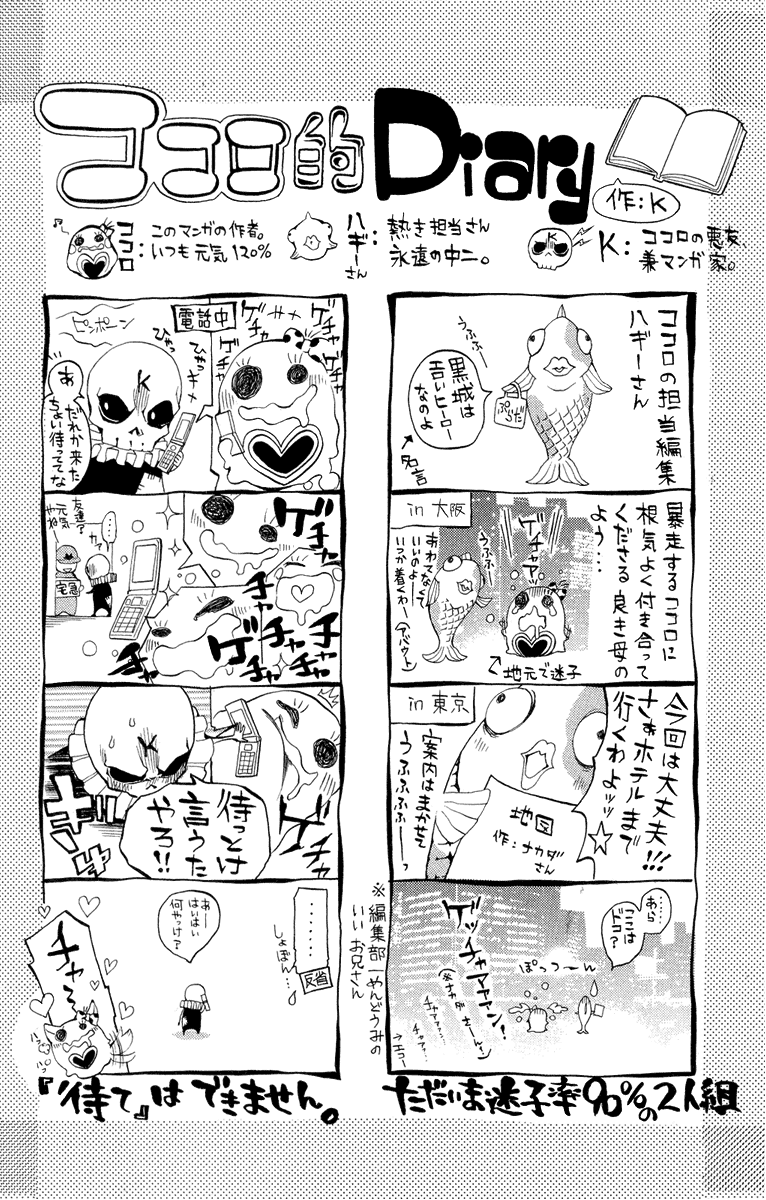 ココロ的Diary
作:K
ココロ:
このマンガの作者。
いつも元気120%
ハギーさん:
熱き担当さん
永遠の中二。
K:
ココロの悪友、
兼マンガ家。
ココロの担当編集
ハギーさん
うふふー
黒城は
苦いヒーロー
なのよ
ぷらだ
←名言
暴走するココロに
根気よく付き合って
くださる良き母の
よう…
in 大阪
ゲチャアァッ
うふふー
あわてなくて
いいのよー
いつか着くわー
(アバウト)
地元で迷子
今回は大丈夫!!!
さぁホテルまで
行くわよッッ☆
in 東京
地図
作:ナカダさん
案内はまかせて
うふふふふーっ
……
あら
ここは
ドコ?
ぽっつーん
ゲッチャアァァン!
(※ナカダさーん!)
チャアァ…
チャァ…
→エコー
ただいま迷子率90%の2人組
※編集部一めんどうみの
いいお兄さん
ゲチャ
ゲチャ
ゲチャ
電話中
ピンポーン
ひゃっ
ひゃっ
ギャ
あ
だれか来た
ちょい待っててな
ゲチャ
チャ
チャ
ゲチャ
ゲチャ
チャ
チャ
……
友達?
元気やね
宅急
待っとけ
言うた
やろ!!
……
しょぼん…
反省
あー
はいはい
何やっけ?
チャ〜
ハッ
ハッ
『待て』はできません。